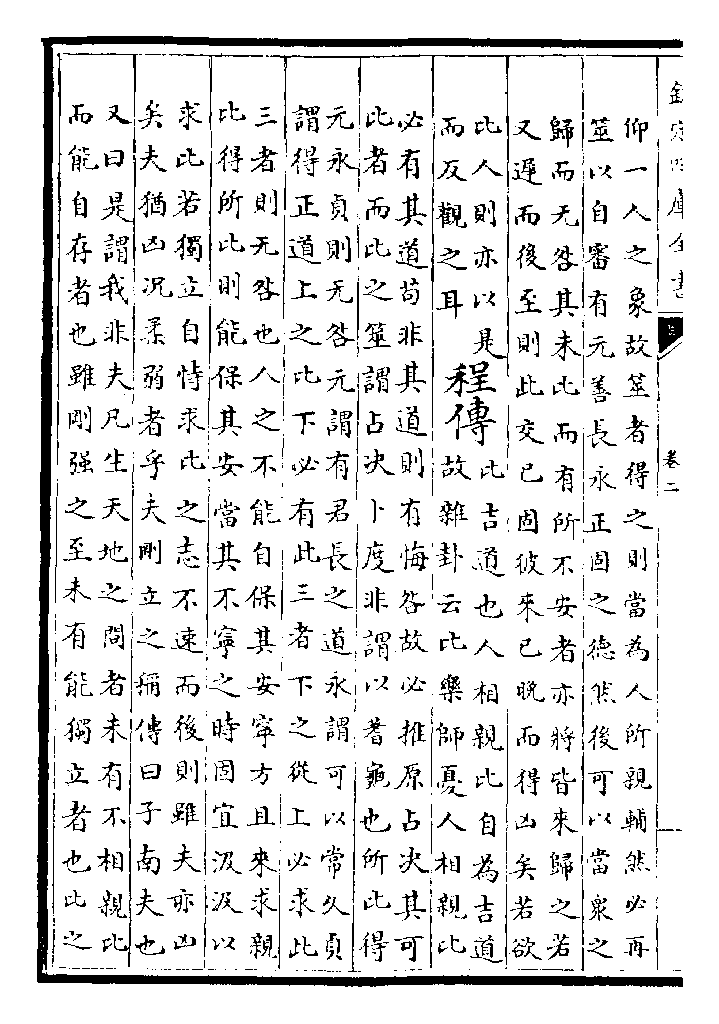 欽定四庫全書
卷二
仰一人之象故筮者得之則當為人所親輔然必再
筮以自審有元善長永正固之德然後可以當衆之
歸而无咎其未比而有所不安者亦將皆來歸之若
又遲而後至則此交已固彼來已晚而得凶矣若欲
比人則亦以是
而反觀之耳
程傳
比吉道也人相親比自為吉道
故雜卦云比樂師憂人相親比
必有其道苟非其道則有悔咎故必推原占决其可
比者而比之筮謂占决卜度非謂以蓍龜也所比得
元永貞則无咎元謂有君長之道永謂可以常久貞
謂得正道上之比下必有此三者下之從上必求此
三者則无咎也人之不能自保其安寧方且來求親
比得所比則能保其安當其不寧之時固宜汲汲以
求比若獨立自恃求比之志不速而後則雖夫亦凶
矣夫猶凶况柔弱者乎夫剛立之稱傳曰子南夫也
又曰是謂我非夫凡生天地之間者未有不相親比
而能自存者也雖剛强之至未有能獨立者也比之